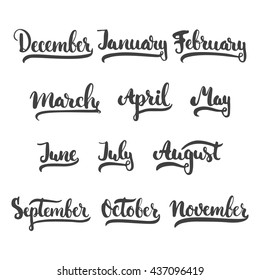 December January February
March April May
June July August
September October November
shutterstock.com · 437096419